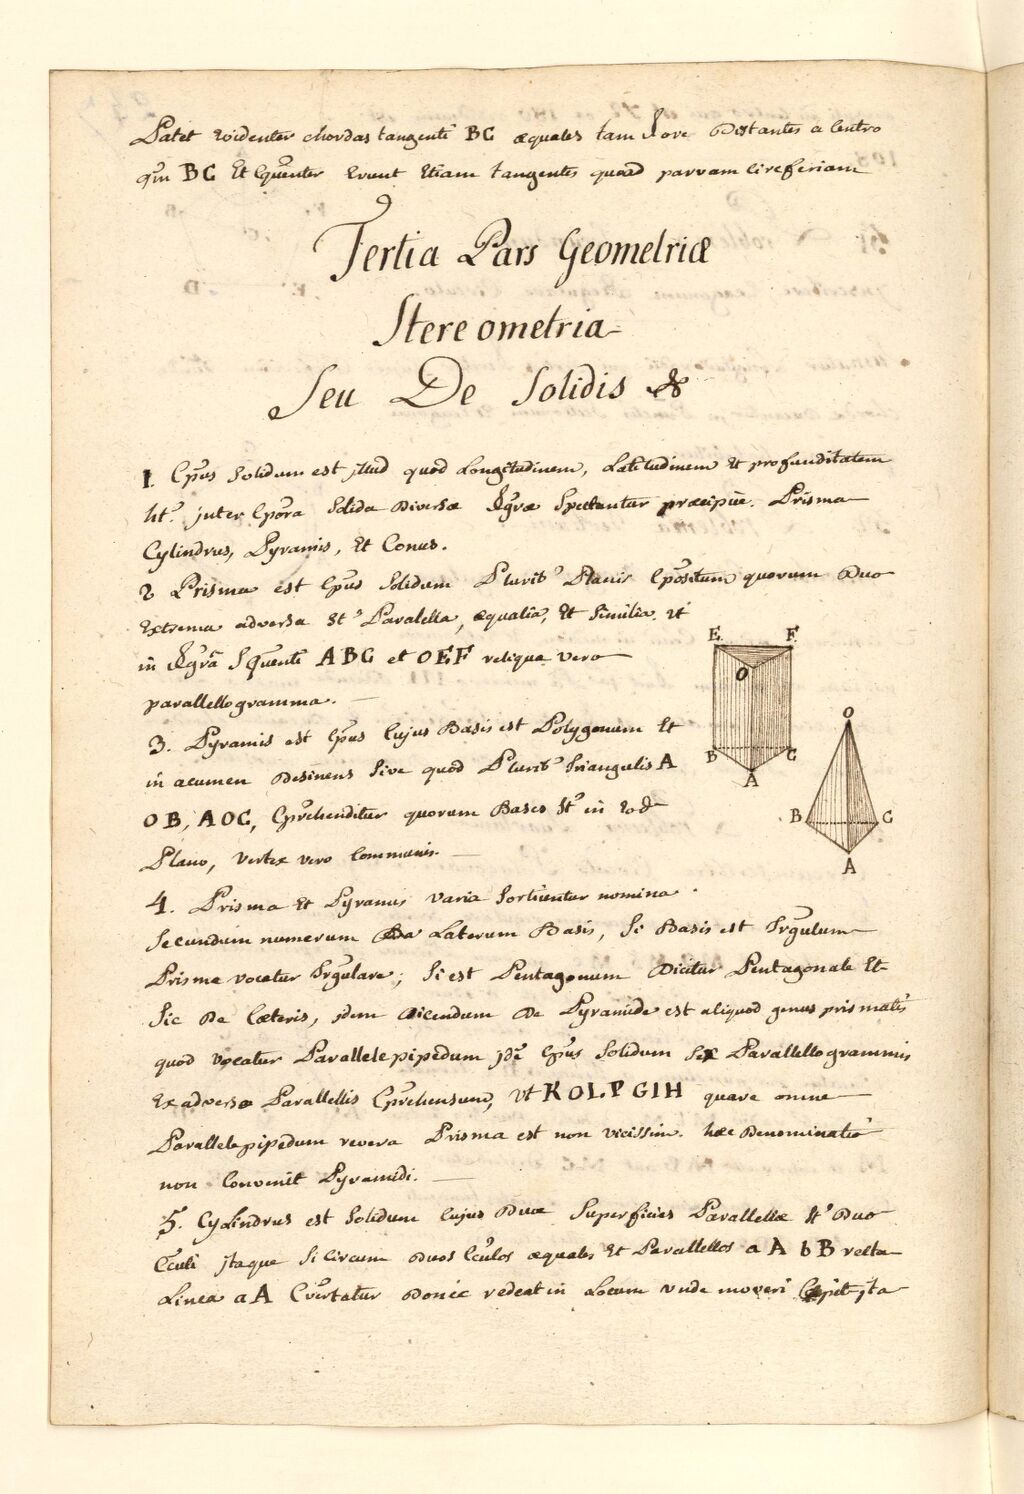 Patet evidenter chordas tangenti BC æquales tam fore Distantes a Centro
qm BC Et Cquenter Erunt Etiam tangentes quoad parvam Circferiam
Tertia Pars Geometriæ
Stereometria
Seu De Solidis &
1. Cpus Solidum est jllud quod Longitudinem, Latitudinem Et profunditatem
ht. jnter Cpora Solida Diversæ fgræ Spectantur præcipue. Prisma
Cylindrus, Pyramis, Et Conus.
2 Prisma est Cpus Solidum Plurib' Planis Cpositum quorum Duo
Extrema adversa St' Paralella, æqualia, Et Similia. ut
in fgra Squenti ABC et OEF reliqua vero
parallellogramma.
3. Pyramis est Cpus Cujus Basis est Polygonum Et
in acumen Desinens Sive quod Plurib' Triangulis A
OB, AOC, Cprehenditur quorum Bases St' in Eod
Plano, Vertex vero Communis.
4. Prisma Et Pyramis varia Sortiuntur nomina
Secundum numerum Laterum Basis, Si Basis est Trgulum
Prisma vocatur Trgulare; Si est Pentagonum Dicitur Pentagonale Et
Sic De Cæteris, jdem Dicendum De Pyramide est aliquod genus prismatis
quod vocatur Parallelepipedum jde Cpus Solidum Sex Parallellogrammis
Ex adverso Parallellis Cprehensum, Ut KOLP GIH quare omne
Parallelepipedum revera Prisma est non vicissim. hæc Denominatio
non Convenit Pyramidi.
5. Cylindrus est Solidum Cujus Duæ Superficies Parallellæ St' Duo
Cculi jtaque Si Circum Duos Cculos æquales Et Parallellos a A b B recta
Linea a A Cvertatur Donec redeat in Locum unde moveri Cæpit jta
E F
O
B C
A
O
B C
A